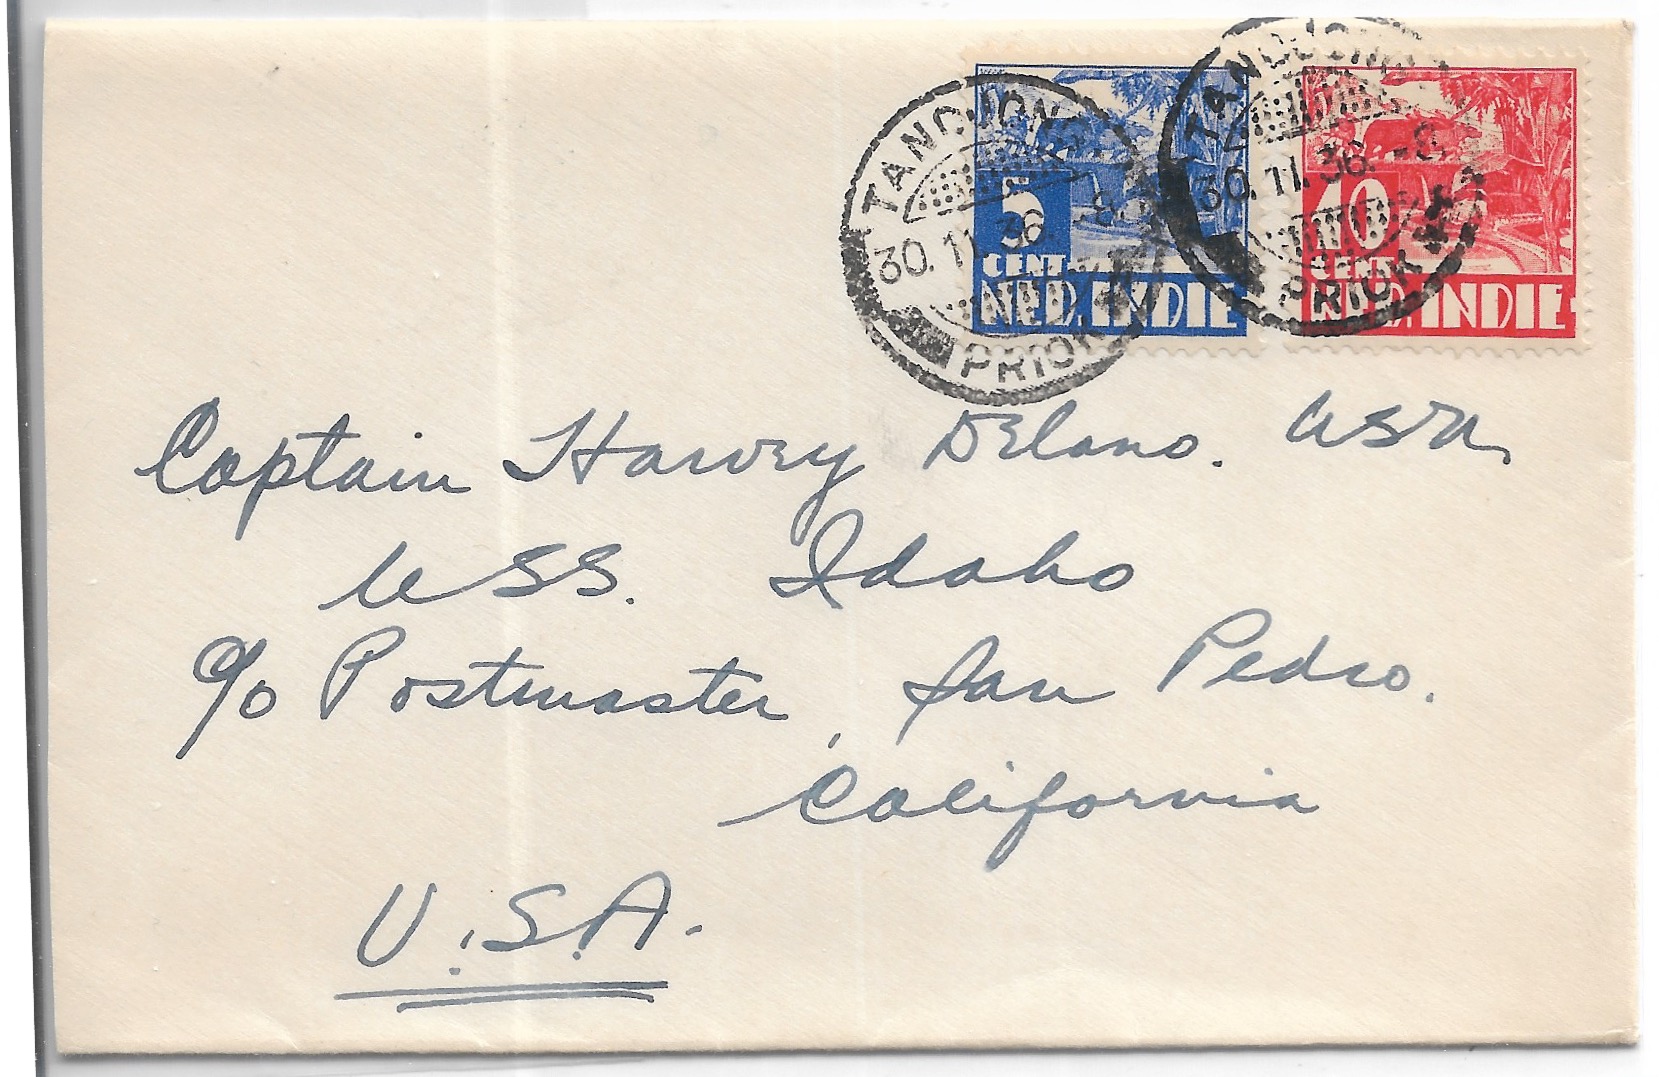 TANDJONG
30.11.36.-8
PRIOK
5
CENT.
NED. INDIE
TANDJONG
30.11.36.-8
PRIOK
10
CENT.
NED. INDIE
Captain Harvey Delano. USN,
USS. Idaho
c/o Postmaster, San Pedro.
California
U.S.A.